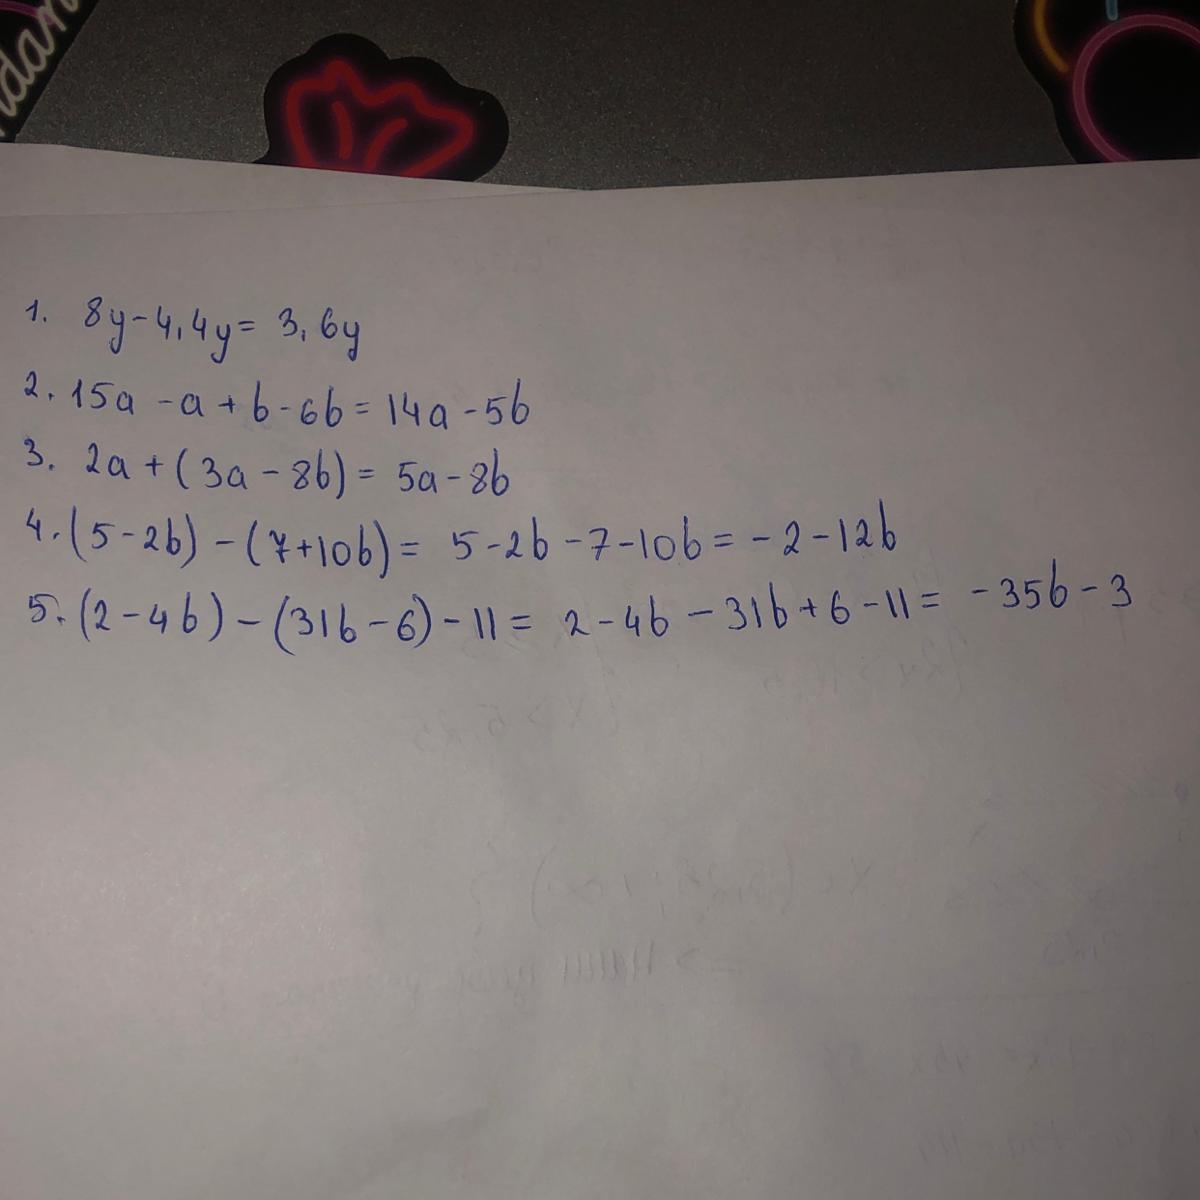 ndan
1. 8y-4,4y= 3,6y
2. 15a -a + b - 6b = 14a - 5b
3. 2a + (3a - 8b) = 5a - 8b
4. (5-2b) - (7+10b) = 5-2b -7-10b = -2-12b
5. (2-4b) - (31b-6) - 11 = 2-4b -31b+6-11 = -35b-3